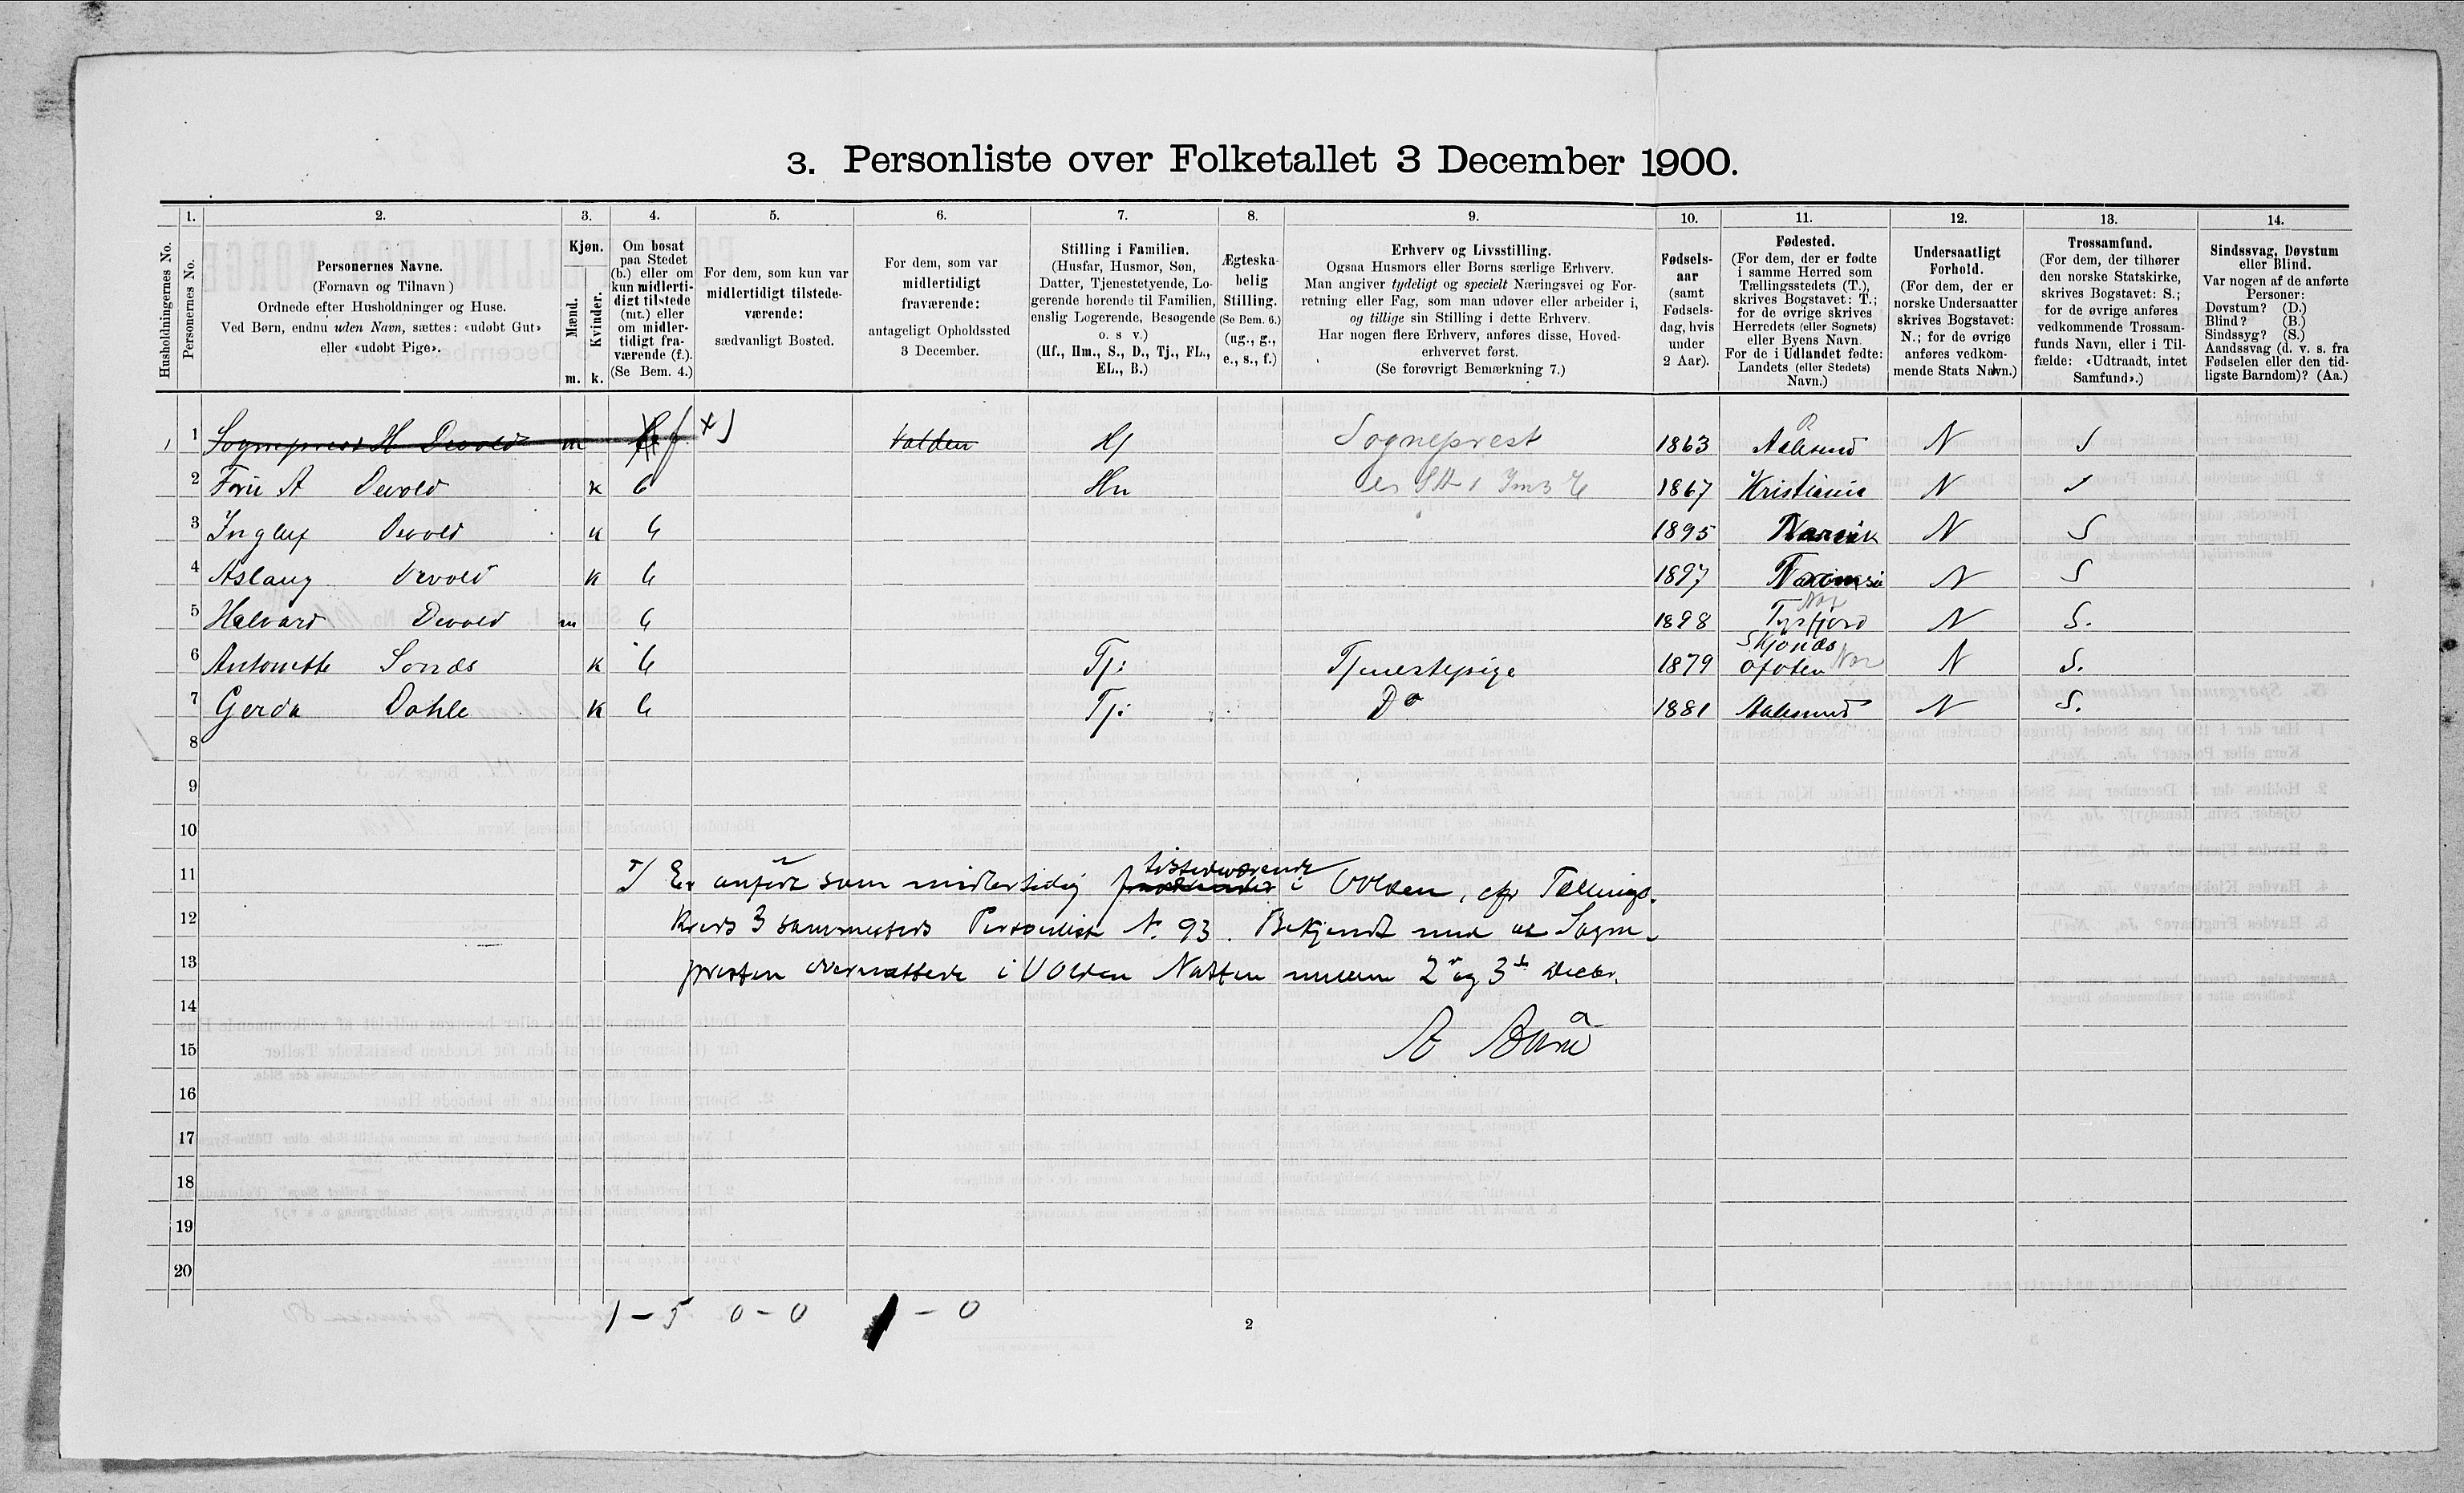 3. Personliste over Folketallet 3 December 1900.
Husholdningernes No.
1. Personernes No.
2. Personernes Navne.
(Fornavn og Tilnavn)
Ordnede efter Husholdninger og Huse.
Ved Børn, endnu uden Navn, sættes: «udøbt Gut»
eller «udøbt Pige».
3. Kjøn.
Mænd. Kvinder.
m. k.
4. Om bosat
paa Stedet
(b.) eller om
kun midlerti-
digt tilstede
(mt.) eller
om midler-
tidigt fra-
værende (f.).
(Se Bem. 4.)
5. For dem, som kun var
midlertidigt tilstede-
værende:
sædvanligt Bosted.
6. For dem, som var
midlertidigt
fraværende:
antageligt Opholdssted
3 December.
7. Stilling i Familien.
(Husfar, Husmor, Søn,
Datter, Tjenestetyende, Lo-
gerende hørende til Familien,
enslig Logerende, Besøgende
o. s v.)
(Hf., Hm., S., D., Tj., FL.,
EL., B.)
8. Ægteska-
belig
Stilling.
(Se Bem. 6.)
(ug., g.,
e., s., f.)
9. Erhverv og Livsstilling.
Ogsaa Husmors eller Børns særlige Erhverv.
Man angiver tydeligt og specielt Næringsvei og For-
retning eller Fag, som man udøver eller arbeider i,
og tillige sin Stilling i dette Erhverv.
Har nogen flere Erhverv, anføres disse, Hoved-
erhvervet først.
(Se forøvrigt Bemærkning 7.)
10. Fødsels-
aar
(samt
Fødsels-
dag, hvis
under
2 Aar).
11. Fødested.
(For dem, der er fødte
i samme Herred som
Tællingsstedets (T.),
skrives Bogstavet: T.;
for de øvrige skrives
Herredets (eller Sognets)
eller Byens Navn.
For de i Udlandet fødte:
Landets (eller Stedets)
Navn.)
12. Undersaatligt
Forhold.
(For dem, der er
norske Undersaatter
skrives Bogstavet:
N.; for de øvrige
anføres vedkom-
mende Stats Navn.)
13. Trossamfund.
(For dem, der tilhører
den norske Statskirke,
skrives Bogstavet: S.;
for de øvrige anføres
vedkommende Trossam-
funds Navn, eller i Til-
fælde: «Udtraadt, intet
Samfund».)
14. Sindssvag, Døvstum
eller Blind.
Var nogen af de anførte
Personer:
Døvstum? (D.)
Blind? (B.)
Sindssyg? (S.)
Aandssvag (d. v. s. fra
Fødselen eller den tid-
ligste Barndom)? (Aa.)
1 Sogneprest H Devold m f x) Volden Hf Sogneprest 1863 Aalesund N S
2 Fru A Devold k b Hm 1867 Kristiania N S
3 Devold k b 1895 N S
4 Aslaug Devold k b 1897 N S
5 Halvard Devold m b 1898 Tysfjord Nor N S.
6 Antonette k b Tj: Tjenestepige 1879 Ofoten Nor N S.
7 Gerda Dahle k b Tj: Do 1881 Aalesund N S.
8
9
10
11 Er anført som midlertidig tilstedeværende i Volden, cfr Tællings-
12 kreds 3 sammesteds Personliste N. 93. Bekjendt med at Sogne-
13 presten overnattede i Volden Natten mellem 2 og 3 Decbr.
14
15
16
17
18
19
20
1 - 5 0 - 0 1 - 0
2